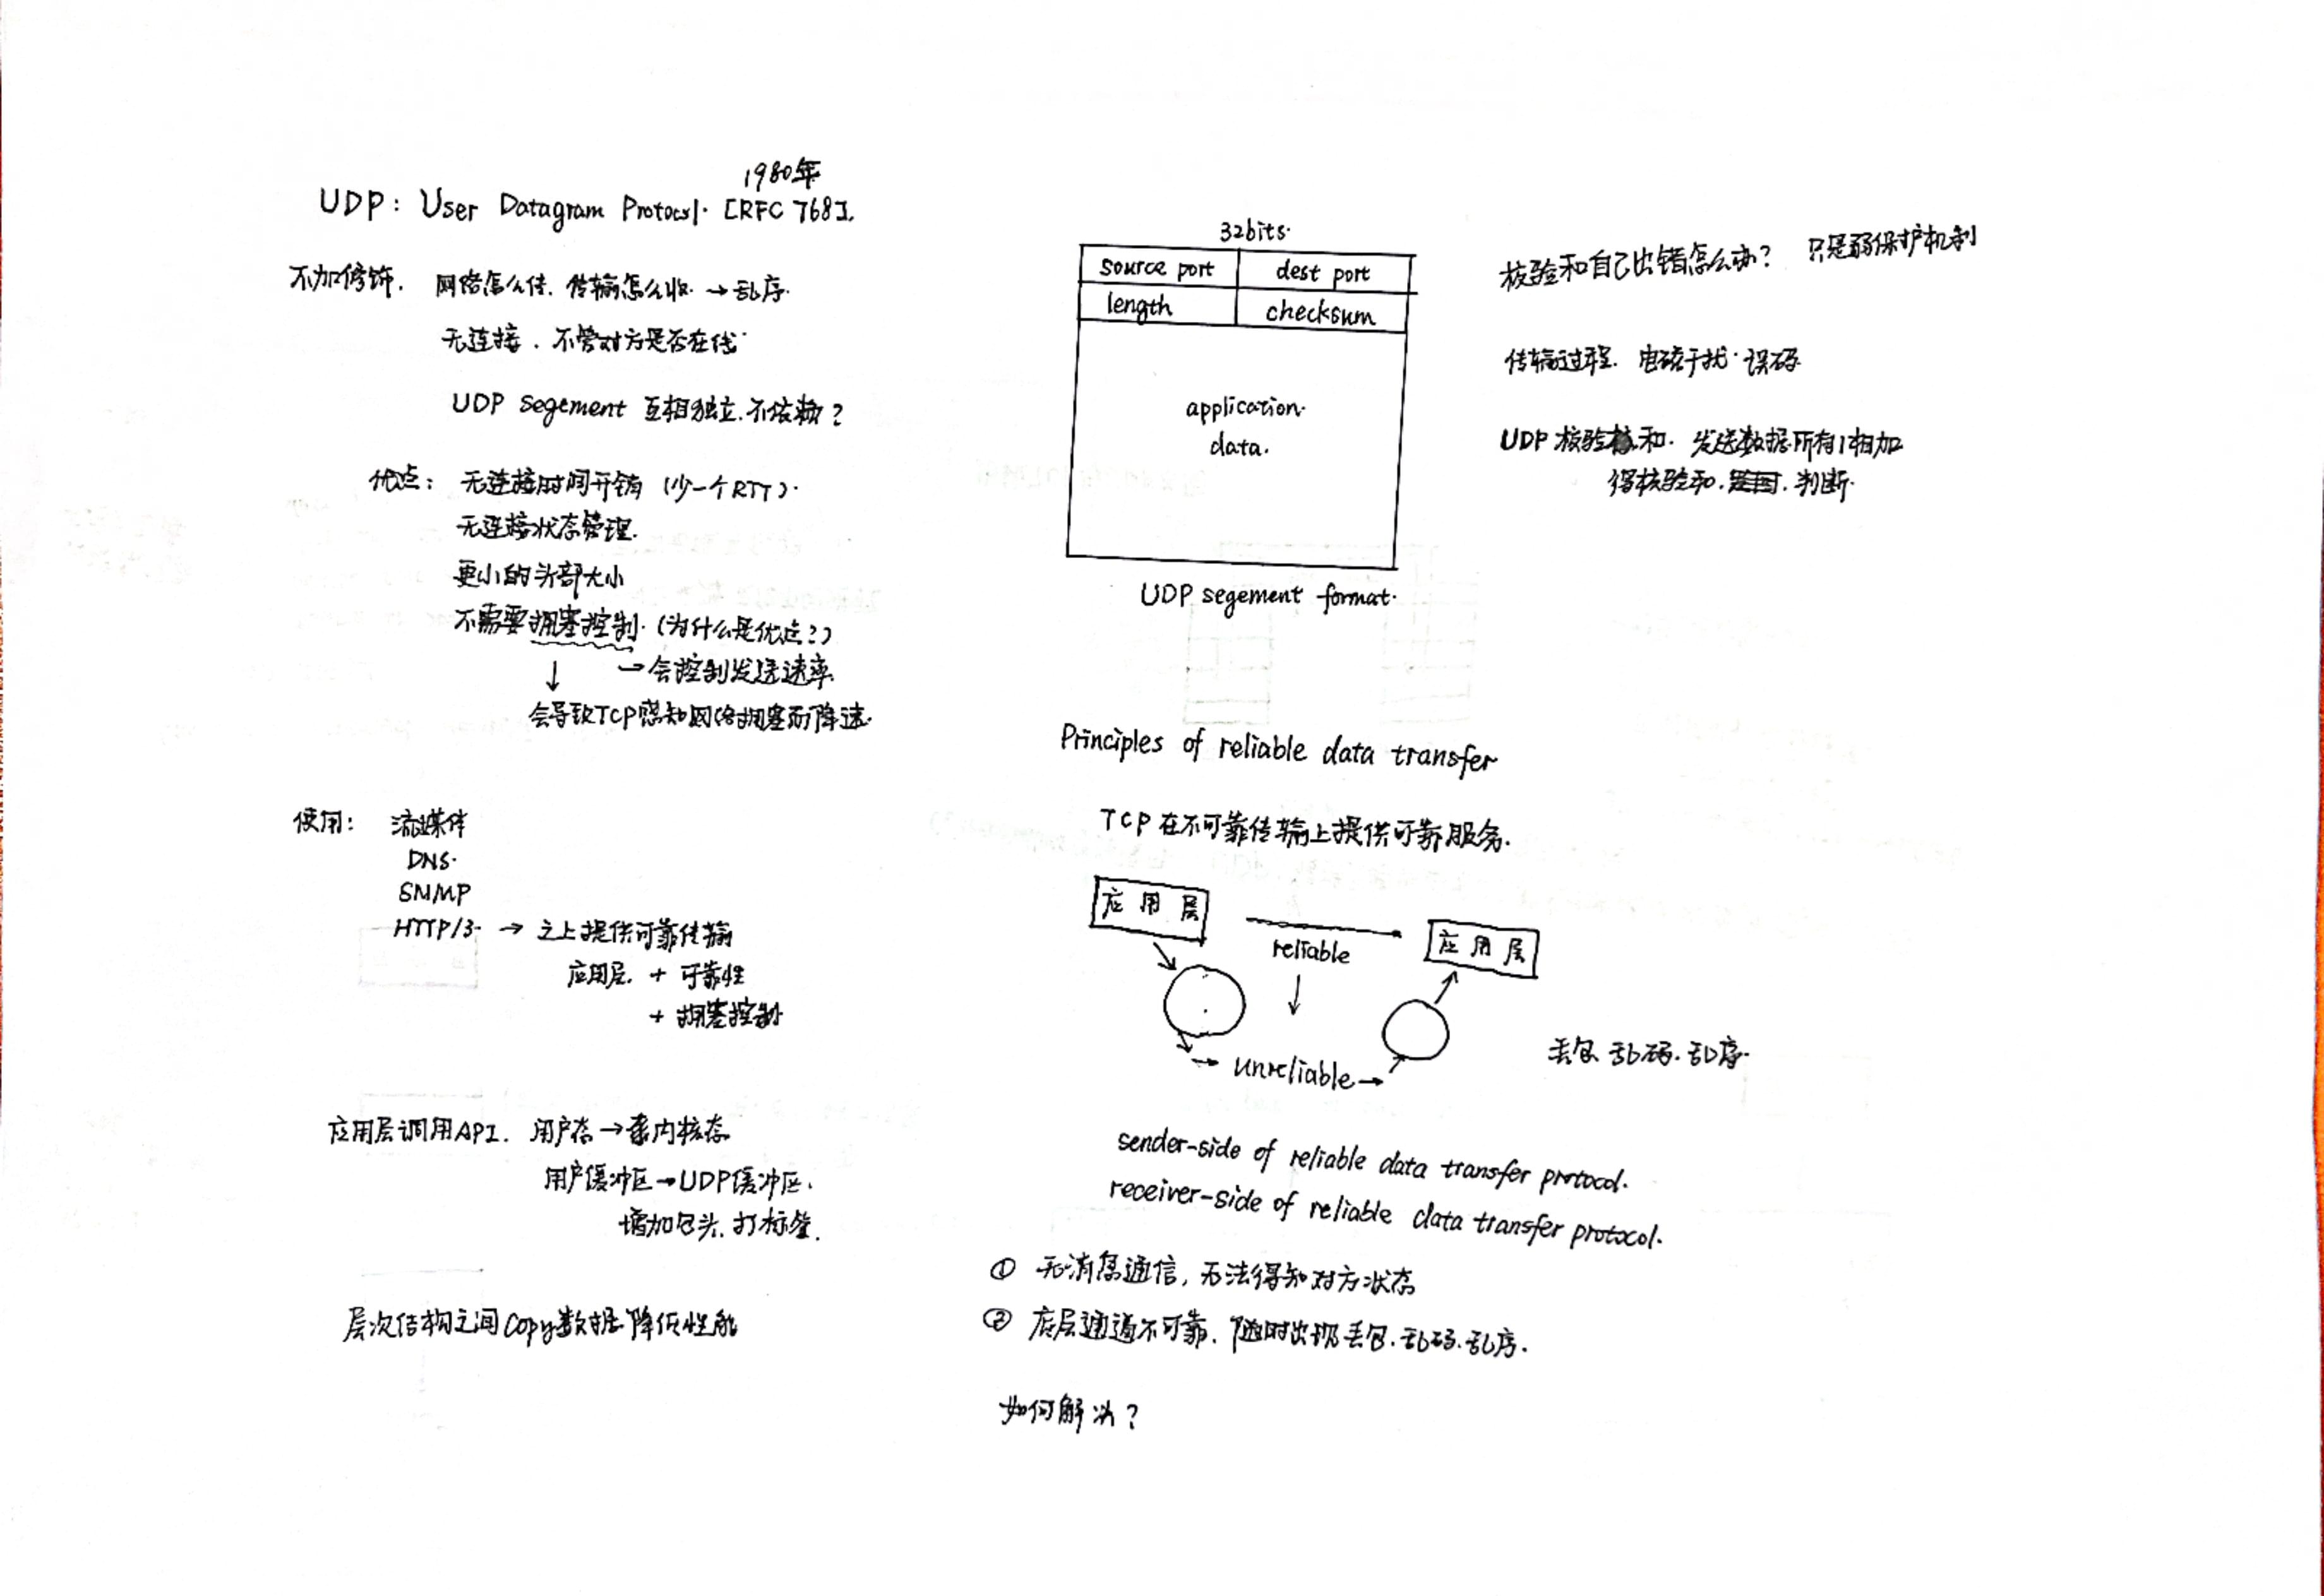 1980年
UDP: User Datagram Protocol. [RFC 768].
不加修饰. 网络怎么传. 传输怎么收. → 乱序.
无连接. 不管对方是否在线.
UDP segement 互相独立. 不依赖?
优点: 无连接时间开销 (少一个RTT).
无连接状态管理.
更小的头部大小
不需要拥塞控制. (为什么是优点?)
↓ → 会控制发送速率.
会导致TCP感知网络拥塞而降速.
使用: 流媒体
DNS.
SNMP
HTTP/3. → 之上提供可靠传输
应用层. + 可靠性
+ 拥塞控制
应用层调用API. 用户态 → 内核态
用户缓冲区 → UDP缓冲区.
增加包头. 打标签.
层次结构之间Copy数据降低性能
32bits.
source port dest port
length checksum
application.
data.
UDP segement format.
核验和自己出错怎么办? 只是弱保护机制
传输过程. 电磁干扰. 误码
UDP 核验和. 发送数据所有1相加
得核验和. 判断.
Principles of reliable data transfer
TCP 在不可靠传输上提供可靠服务.
应用层
reliable
应用层
↓
→ unreliable →
丢包. 乱码. 乱序.
sender-side of reliable data transfer protocol.
receiver-side of reliable data transfer protocol.
① 无消息通信, 无法得知对方状态
② 底层通道不可靠. 随时出现丢包. 乱码. 乱序.
如何解决?